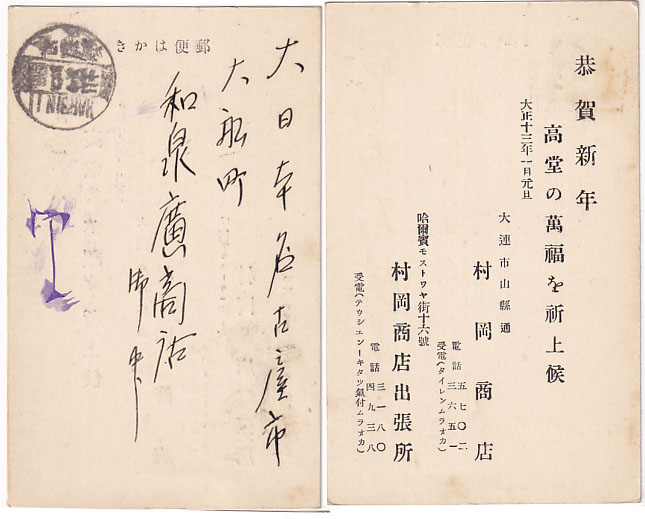 郵便はかき
大日本名古屋市
大船町
和泉廣商店
御中
HARBIN
恭賀新年
高堂の萬福を祈上候
大正十三年一月元旦
大連市山縣通
村岡商店
電話 五七〇二
三六五一
受電(タイレンムラオカ)
哈爾賓モストワヤ街十六號
村岡商店出張所
電話 三一八〇
四九三八